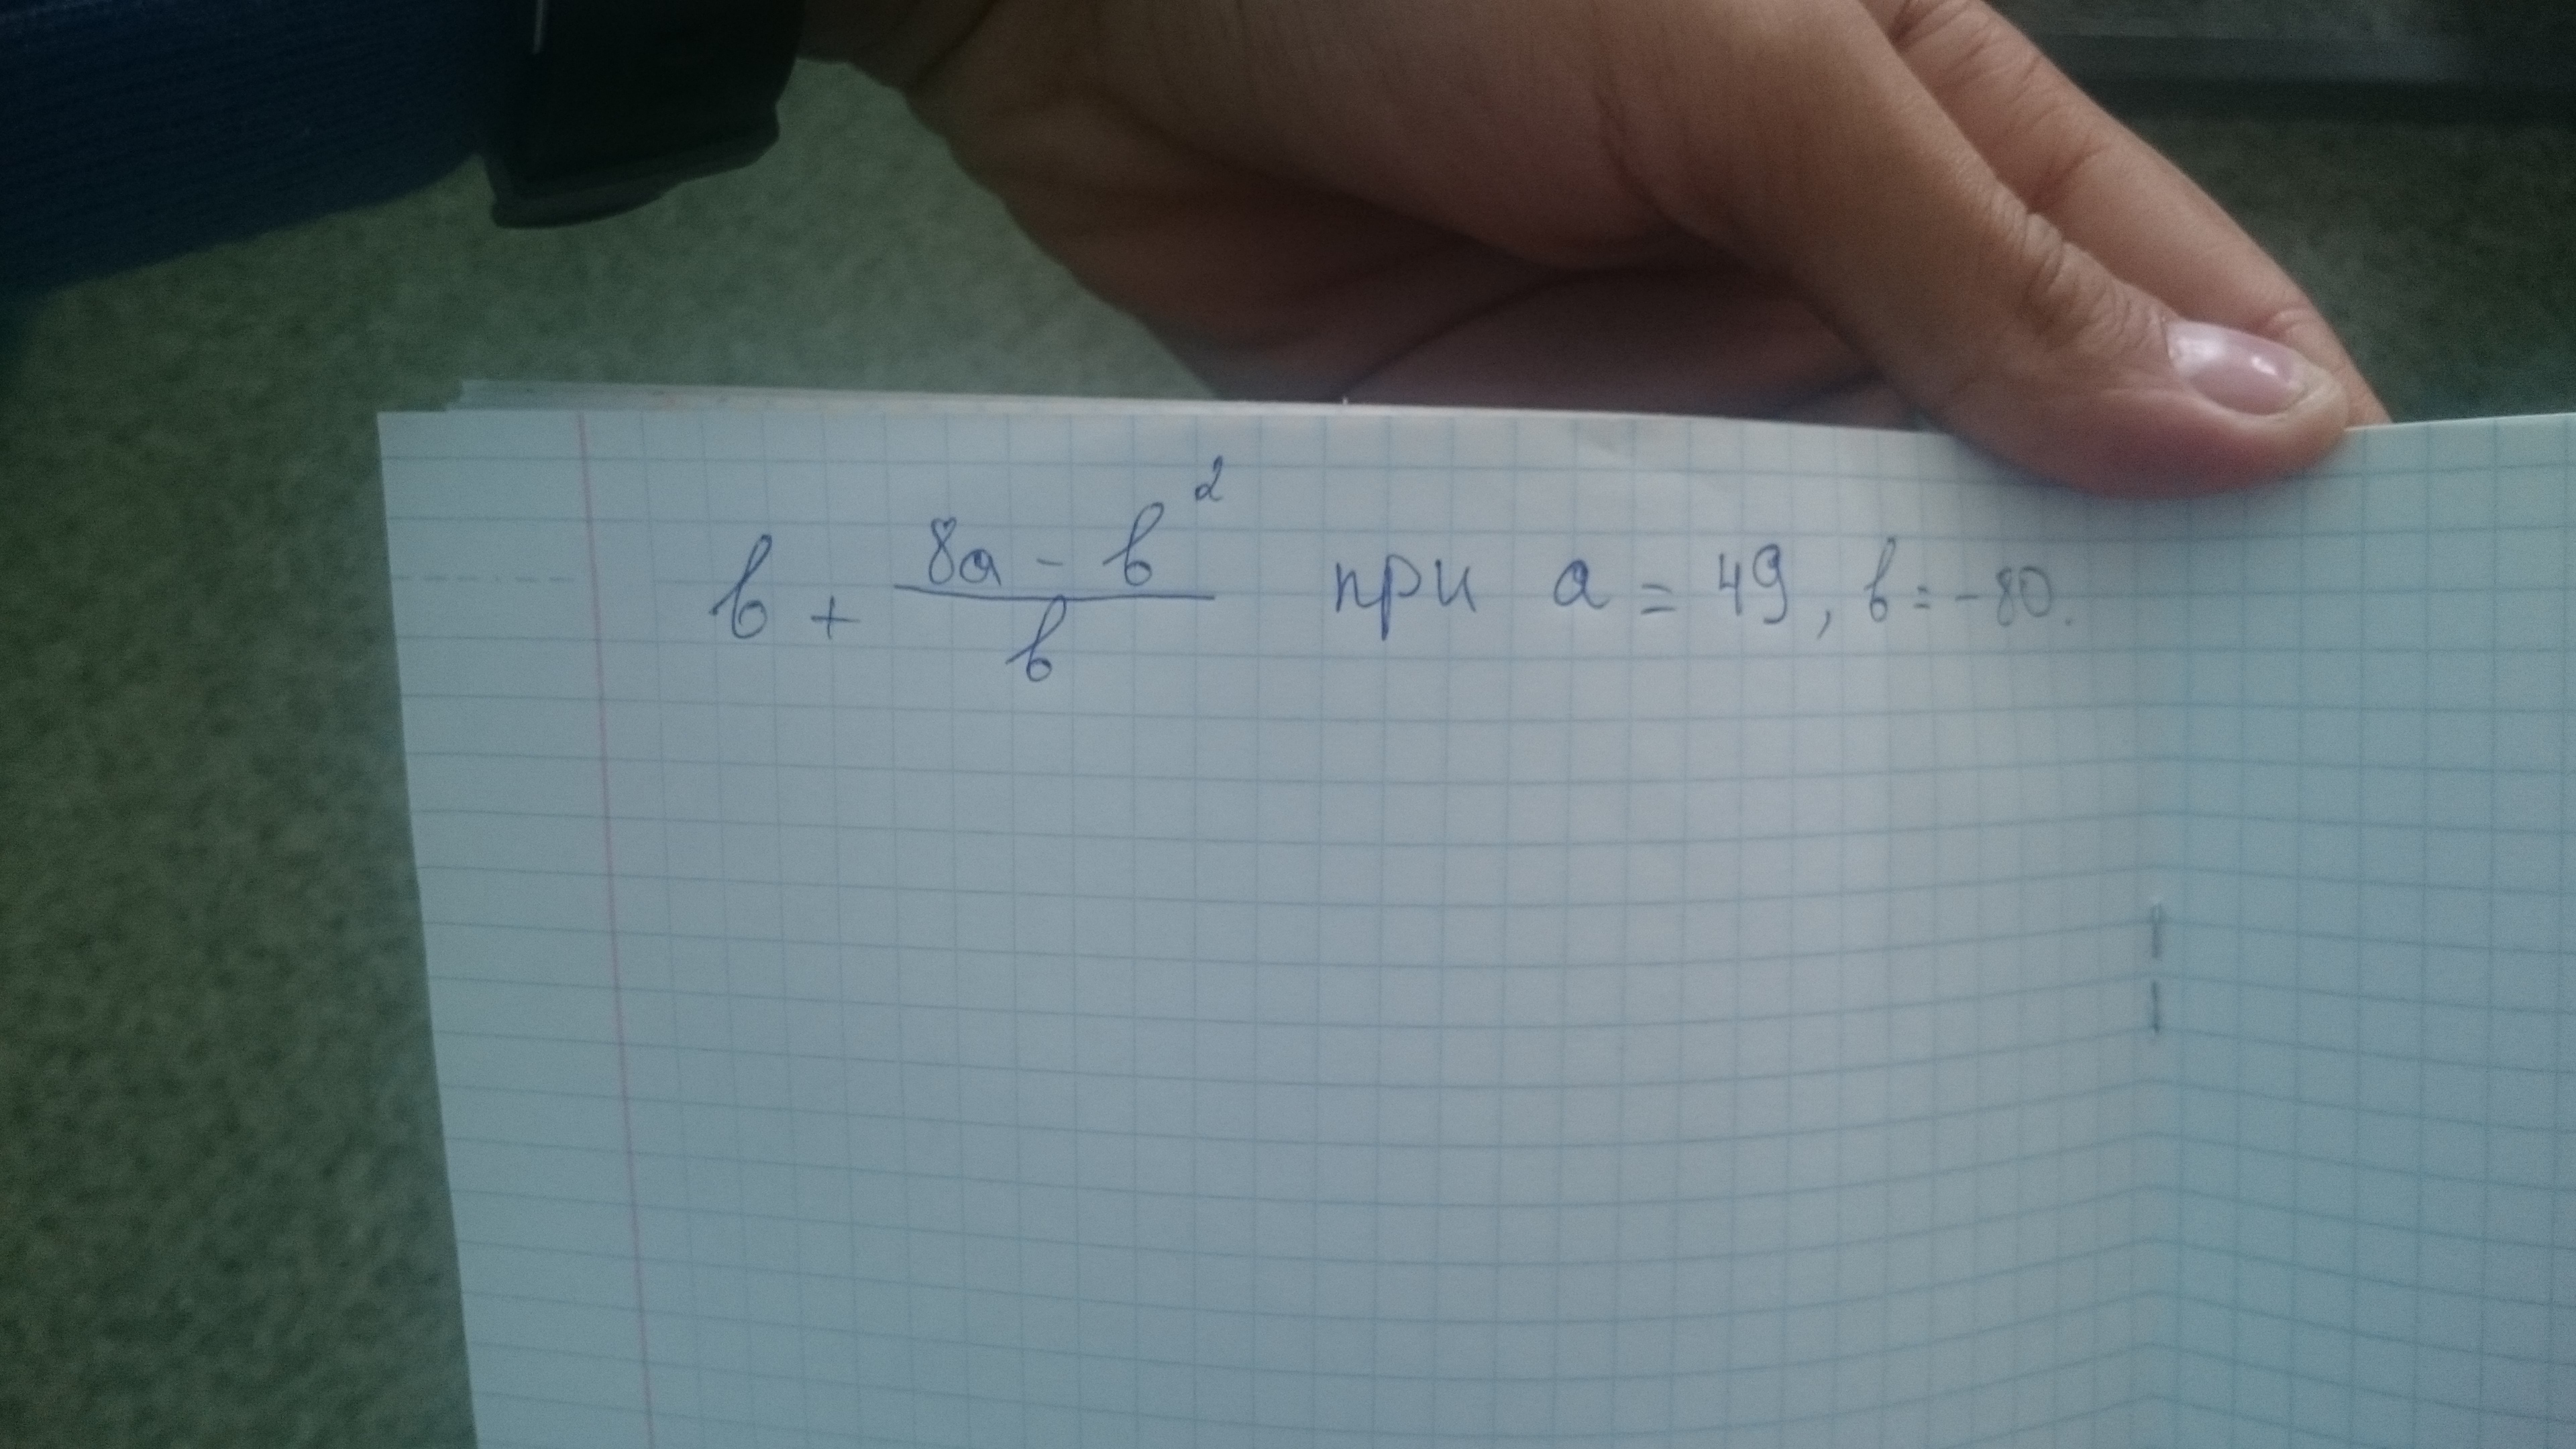 b + \frac{8a - b^2}{b} при a = 49, b = -80.